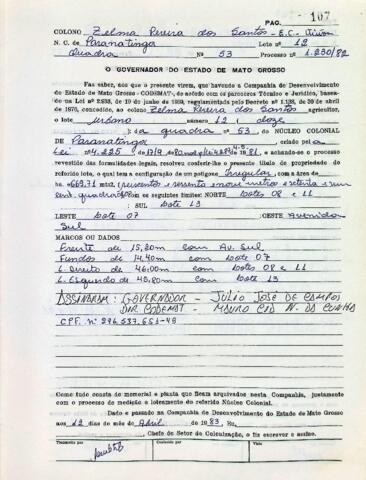 PAG. 107
COLONO Zelma Pereira dos Santos - E.C.
N. C. de Paranatinga Lote nº 12
Quadra Nº 53 Processo nº 1.230/82
O GOVERNADOR DO ESTADO DE MATO GROSSO
Faz saber, aos que a presente virem, que havendo a Companhia de Desenvolvimento
do Estado de Mato Grosso - CODEMAT-, de acôrdo com os parecêres Técnico e Jurídico, basea-
do na Lei nº 2.933, de 19 de junho de 1969, regulamentada pelo Decreto nº 1.138, de 30 de abril
de 1970, concedido ao colono Zelma Pereira dos Santos agricultor,
o lote urbano nº 12 ( doze
) da quadra nº 53 do NÚCLEO COLONIAL
DE Paranatinga criado pela
Lei nº 4.225 e achando-se o processo
revestido das formalidades legais, resolveu conferir-lhe o presente título de propriedade do
referido lote, o qual tem a configuração de um polígono Irregular, com a área de
669,71 mts2 (seiscentos e sessenta e nove metros e setenta e um
cent. quadrados) com os seguintes limites: NORTE lotes 08 e 11
SUL lote 13
LESTE lote 07 OESTE Avenida
Sul
MARCOS OU DADOS
Frente de 15,20m com Av. Sul
Fundos de 14,40m com lote 07
L. Direito de 46,00m com lotes 08 e 11
L. Esquerdo de 45,80m com lote 13
ASSINARAM: GOVERNADOR - JÚLIO JOSÉ DE CAMPOS
DIR. CODEMAT - MAURO CID N. DA CUNHA
CPF. nº 296.537.651-49
Como tudo consta do memorial e planta que ficam arquivados nesta Companhia, juntamente
com o processo de medição e loteamento do referido Núcleo Colonial.
Dado e passado na Companhia de Desenvolvimento do Estado de Mato Grosso
aos 12 dias do mês de Abril de 1983. Eu,
Chefe do Setor de Colonização, o fiz escrever e assino.
Transcrito por Conferido por Visto